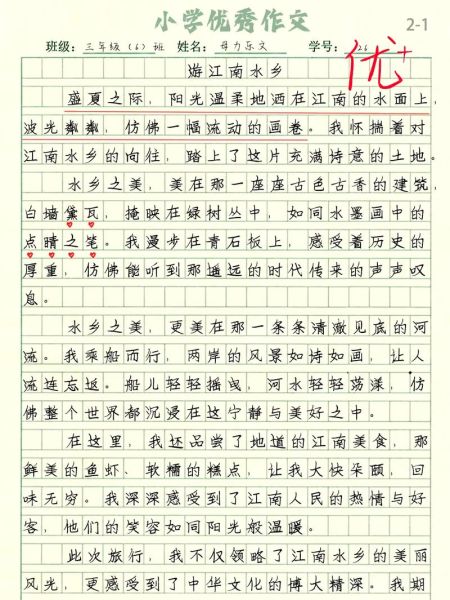 小学优秀作文
2-1
班级：三年级（6）班 姓名：毋力乐文 学号：26
优+
游江南水乡
盛夏之际，阳光温柔地洒在江南的水面上，
波光粼粼，仿佛一幅流动的画卷。我怀揣着对
江南水乡的向往，踏上了这片充满诗意的土地。
水乡之美，美在那一座座古色古香的建筑，
白墙黛瓦，掩映在绿树丛中，如同水墨画中的
点睛之笔。我漫步在青石板上，感受着历史的
厚重，仿佛能听到那遥远的时代传来的声声叹
息。
水乡之美，更美在那一条条清澈见底的河
流。我乘船而行，两岸的风景如诗如画，让人
流连忘返。船儿轻轻摇曳，河水轻轻荡漾，仿
佛整个世界都沉浸在这宁静与美好之中。
在这里，我还品尝了地道的江南美食，那
鲜美的鱼虾、软糯的糕点，让我大快朵颐，回
味无穷。我深深感受到了江南人民的热情与好
客，他们的笑容如同阳光般温暖。
此次旅行，我不仅领略了江南水乡的美丽
风光，更感受到了中华文化的博大精深。我期